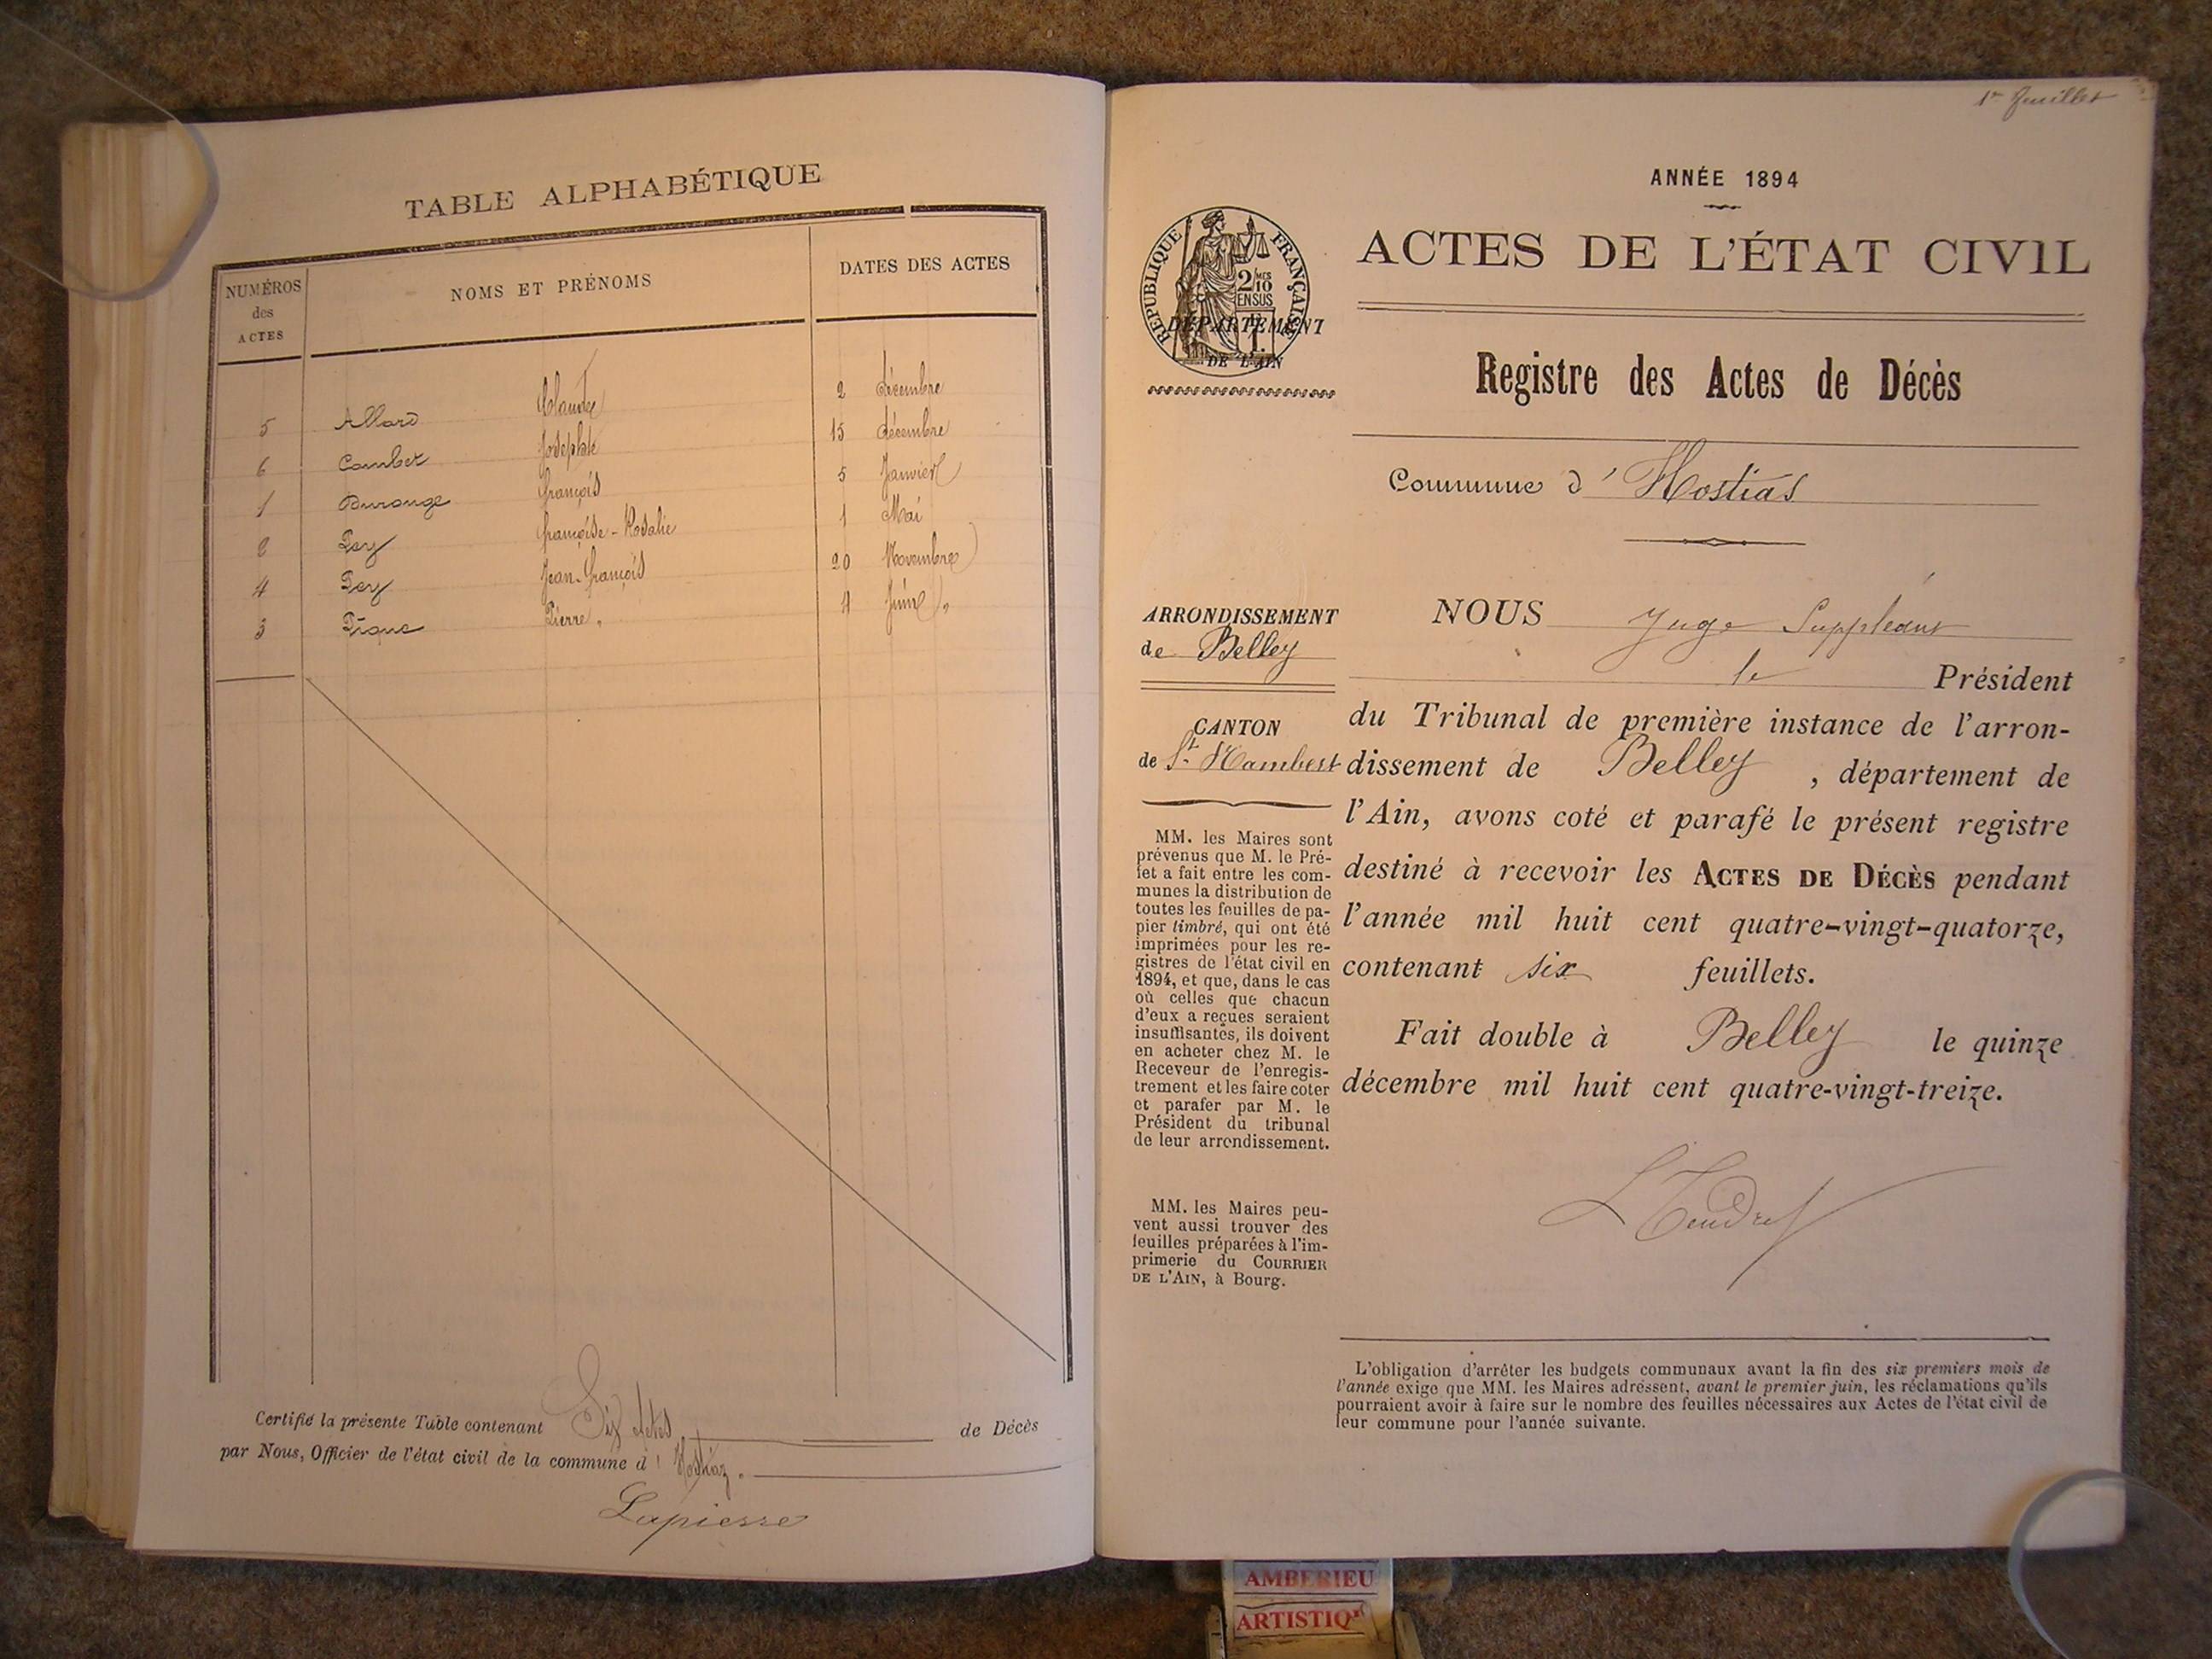 TABLE ALPHABÉTIQUE
NUMÉROS des ACTES NOMS ET PRÉNOMS DATES DES ACTES
5 Allard Claude 2 décembre
6 Combet Josephte 15 décembre
1 Durange François 5 Janvier
2 Pey Françoise-Rosalie 1 Mai
4 Pey Jean-François 20 Novembre
3 Pierre 4 Juin
Certifié la présente Table contenant Six actes de Décès
par Nous, Officier de l'état civil de la commune d'Hostiaz.
Lapierre
1er feuillet
ANNÉE 1894
RÉPUBLIQUE FRANÇAISE
2/10 MES
EN SUS
DÉPARTEMENT
DE L'AIN
ACTES DE L'ÉTAT CIVIL
Registre des Actes de Décès
Commune d'Hostias
ARRONDISSEMENT
de Belley
CANTON
de St Rambert
MM. les Maires sont
prévenus que M. le Pré-
fet a fait entre les com-
munes la distribution de
toutes les feuilles de pa-
pier timbré, qui ont été
imprimées pour les re-
gistres de l'état civil en
1894, et que, dans le cas
où celles que chacun
d'eux a reçues seraient
insuffisantes, ils doivent
en acheter chez M. le
Receveur de l'enregis-
trement et les faire coter
et parafer par M. le
Président du tribunal
de leur arrondissement.
MM. les Maires peu-
vent aussi trouver des
feuilles préparées à l'im-
primerie du COURRIER
DE L'AIN, à Bourg.
NOUS Juge Suppléant
le Président
du Tribunal de première instance de l'arron-
dissement de Belley, département de
l'Ain, avons coté et parafé le présent registre
destiné à recevoir les ACTES DE DÉCÈS pendant
l'année mil huit cent quatre-vingt-quatorze,
contenant six feuillets.
Fait double à Belley le quinze
décembre mil huit cent quatre-vingt-treize.
L'obligation d'arrêter les budgets communaux avant la fin des six premiers mois de
l'année exige que MM. les Maires adressent, avant le premier juin, les réclamations qu'ils
pourraient avoir à faire sur le nombre des feuilles nécessaires aux Actes de l'état civil de
leur commune pour l'année suivante.
AMBERIEU
ARTISTIQ